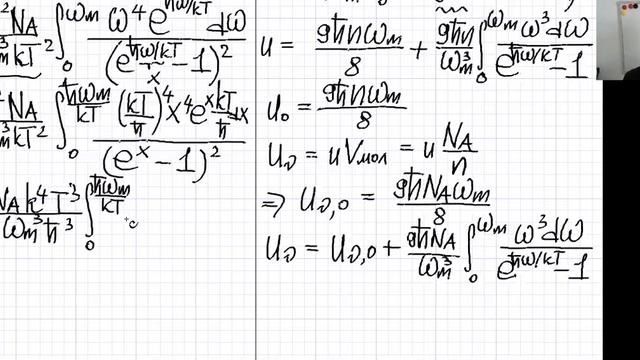 ²N_A/(_m³kT²) ∫₀^ω_m ω⁴e^(ħω/kT) dω/(e^(ħω/kT) − 1)²
x
N_A/(³kT²) ∫₀^(ħω_m/kT) (kT/ħ)⁴x⁴e^x (kT/ħ)dx/(e^x − 1)²
N_A k⁴T³/(ω_m³ħ³) ∫₀^(ħω_m/kT)
u = 9ħnω_m/8 + 9ħn/ω_m³ ∫₀^ω_m ω³dω/(e^(ħω/kT) − 1)
u₀ = 9ħnω_m/8
U_ν = uV_мол = u N_A/n
⇒ U_ν,0 = 9ħN_Aω_m/8
U_ν = U_ν,0 + 9ħN_A/ω_m³ ∫₀^ω_m ω³dω/(e^(ħω/kT) − 1)